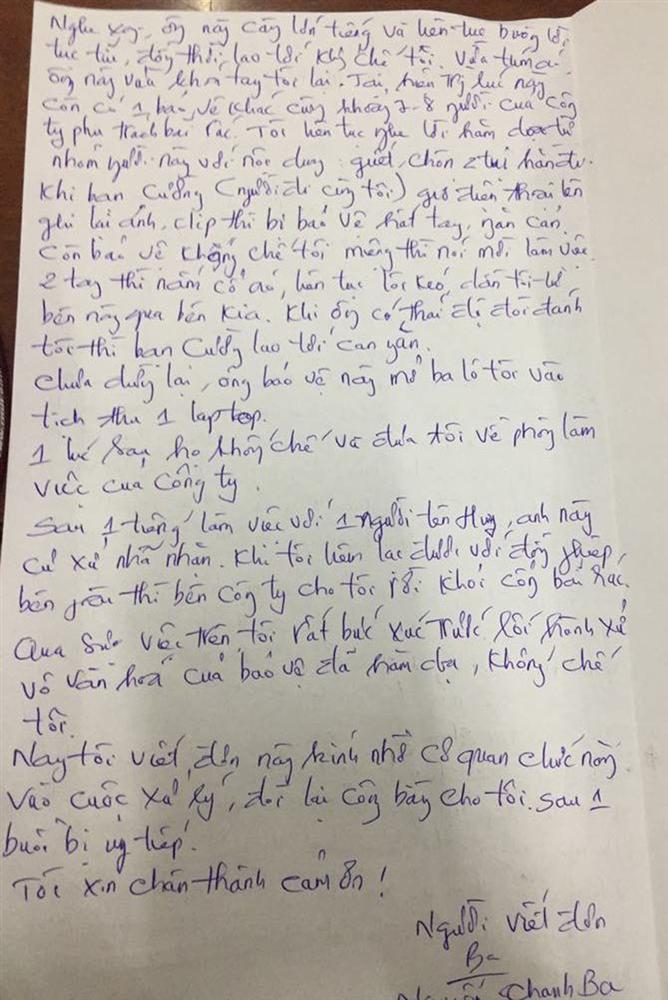 Nghe xong, ông này càng lớn tiếng và liên tục buông lời
tục tĩu, đồng thời lao tới khống chế tôi. Vừa túm áo
ông này vừa khóa tay tôi lại. Tại hiện trường lúc này
còn có 1 bảo vệ khác cùng khoảng 7-8 người của công
ty phụ trách bãi rác. Tôi liên tục nghe lời hăm dọa từ
nhóm người này với nội dung: giết, chôn 2 tụi hắn đi.
Khi bạn Cường (người đi cùng tôi) giơ điện thoại lên
ghi lại ảnh, clip thì bị bảo vệ hất tay, ngăn cản.
Còn bảo vệ khống chế tôi miệng thì nói mời làm việc
2 tay thì nắm cổ áo, liên tục lôi kéo, dằn tôi từ
bên này qua bên kia. Khi ông có thái độ đòi đánh
tôi thì bạn Cường lao tới can ngăn.
Chưa dừng lại, ông bảo vệ này mở ba lô tôi vào
tịch thu 1 laptop.
1 lúc sau họ khống chế và đưa tôi về phòng làm
việc của công ty.
Sau 1 tiếng làm việc với 1 người tên Huy, anh này
cư xử nhã nhặn. Khi tôi liên lạc được với đồng nghiệp,
bên trên thì bên công ty cho tôi rời khỏi cổng bãi rác.
Qua sự việc trên, tôi rất bức xúc trước lối hành xử
vô văn hoá của bảo vệ đã hăm dọa, khống chế
tôi.
Nay tôi viết đơn này kính nhờ cơ quan chức năng
vào cuộc xử lý, đòi lại công bằng cho tôi sau 1
buổi bị uy hiếp.
Tôi xin chân thành cảm ơn!
Người viết đơn
Ba
Chanh Ba